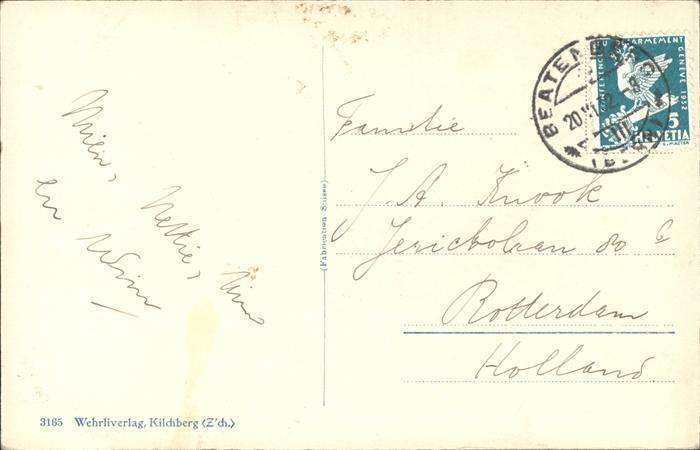 Mien,
Nettie, Wim
en Wim
(Fabrication Suisse)
3165 Wehrliverlag, Kilchberg (Z'ch.)
BEATENB
20 VI 32 - 8
(BERN)
DÉSARMEMENT
GENÈVE 1932
5
HELVETIA
Familie
J. A. Knook
Jericholaan 80 b
Rotterdam
Holland